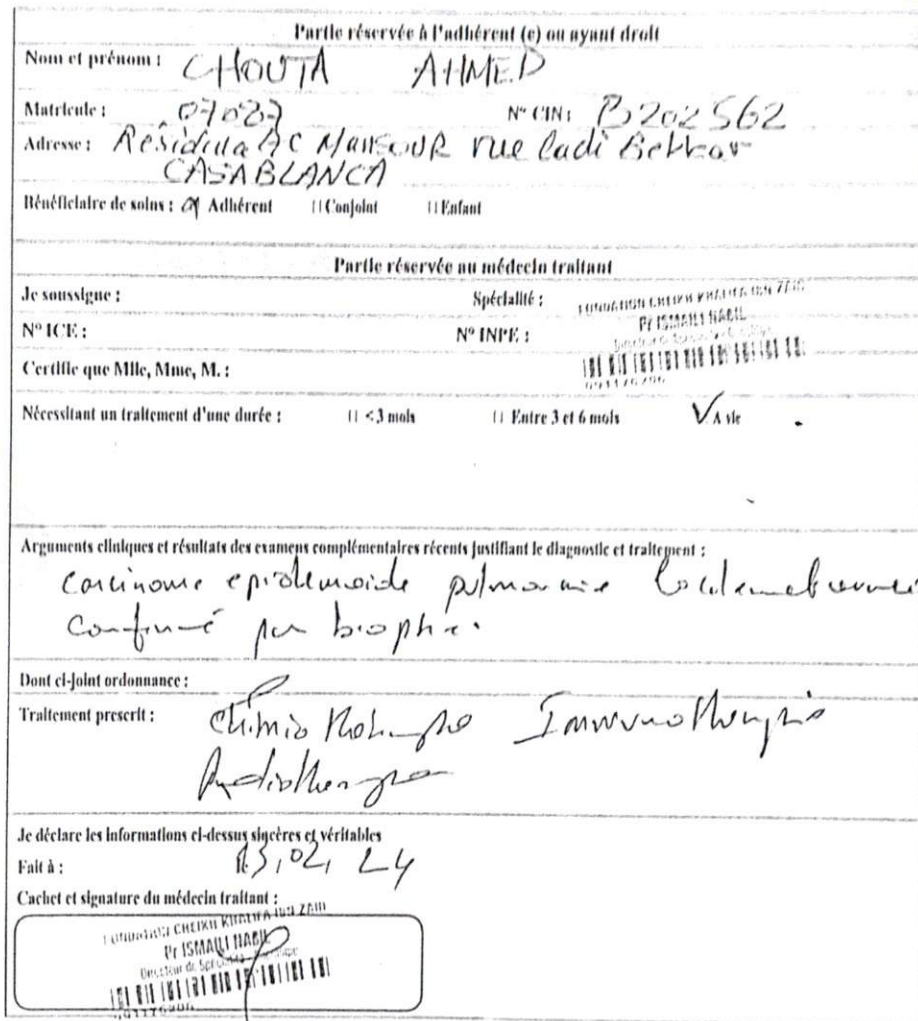 Partie réservée à l'adhérent (e) ou ayant droit
Nom et prénom : CHOUTA AHMED
Matricule : 07087 N° CIN : B202562
Adresse : Résidence AC MANSOUR rue Cadi Bekkar
CASABLANCA
Bénéficiaire de soins : Adhérent Conjoint Enfant
Partie réservée au médecin traitant
Je soussigne : Spécialité :
FONDATION CHEIKH KHALIFA IBN ZAID
Pr ISMAILI NABIL
N° ICE : N° INPE :
091176206
Certifie que Mlle, Mme, M. :
Nécessitant un traitement d'une durée : < 3 mois Entre 3 et 6 mois A vie
Arguments cliniques et résultats des examens complémentaires récents justifiant le diagnostic et traitement :
carcinome epidermoide pulmonaire localement
confirmé par biopsie.
Dont ci-joint ordonnance :
Traitement prescrit : Chimiothérapie Immunothérapie
Radiothérapie
Je déclare les informations ci-dessus sincères et véritables
Fait à : 13, 02, 24
Cachet et signature du médecin traitant :
FONDATION CHEIKH KHALIFA IBN ZAID
Pr ISMAILI NABIL
091176206